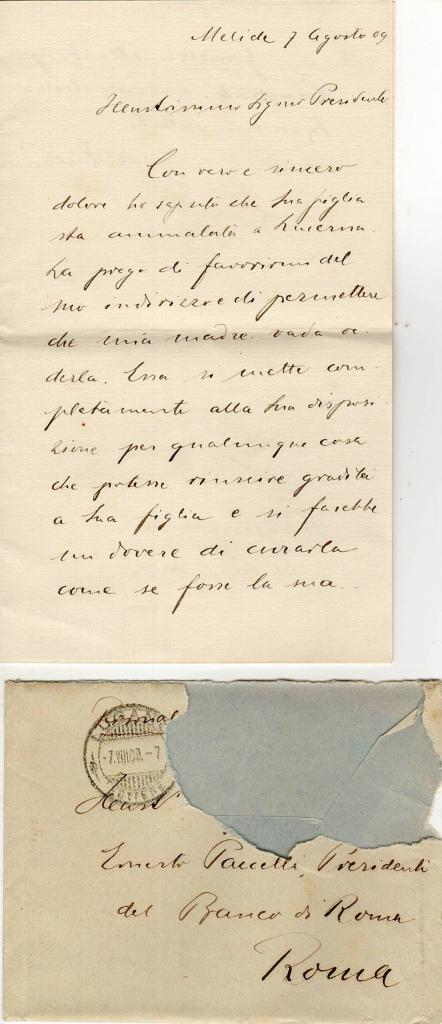 Melide 7 Agosto 09
Illustrissimo Signor Presidente
Con vero e sincero
dolore ho saputo che Sua figlia
sta ammalata a Lucerna.
La prego di favorirmi del
suo indirizzo e di permettere
che mia madre vada ve-
derla. Essa si mette com-
pletamente alla Sua disposi-
zione per qualunque cosa
che potesse riuscire gradita
a Sua figlia e si farebbe
un dovere di curarla
come se fosse la sua.
Personal
LUGANO
-7.VIII.09.-7
LETTERE
Illust
Ernesto Pacelli, Presidente
del Banco di Roma
Roma